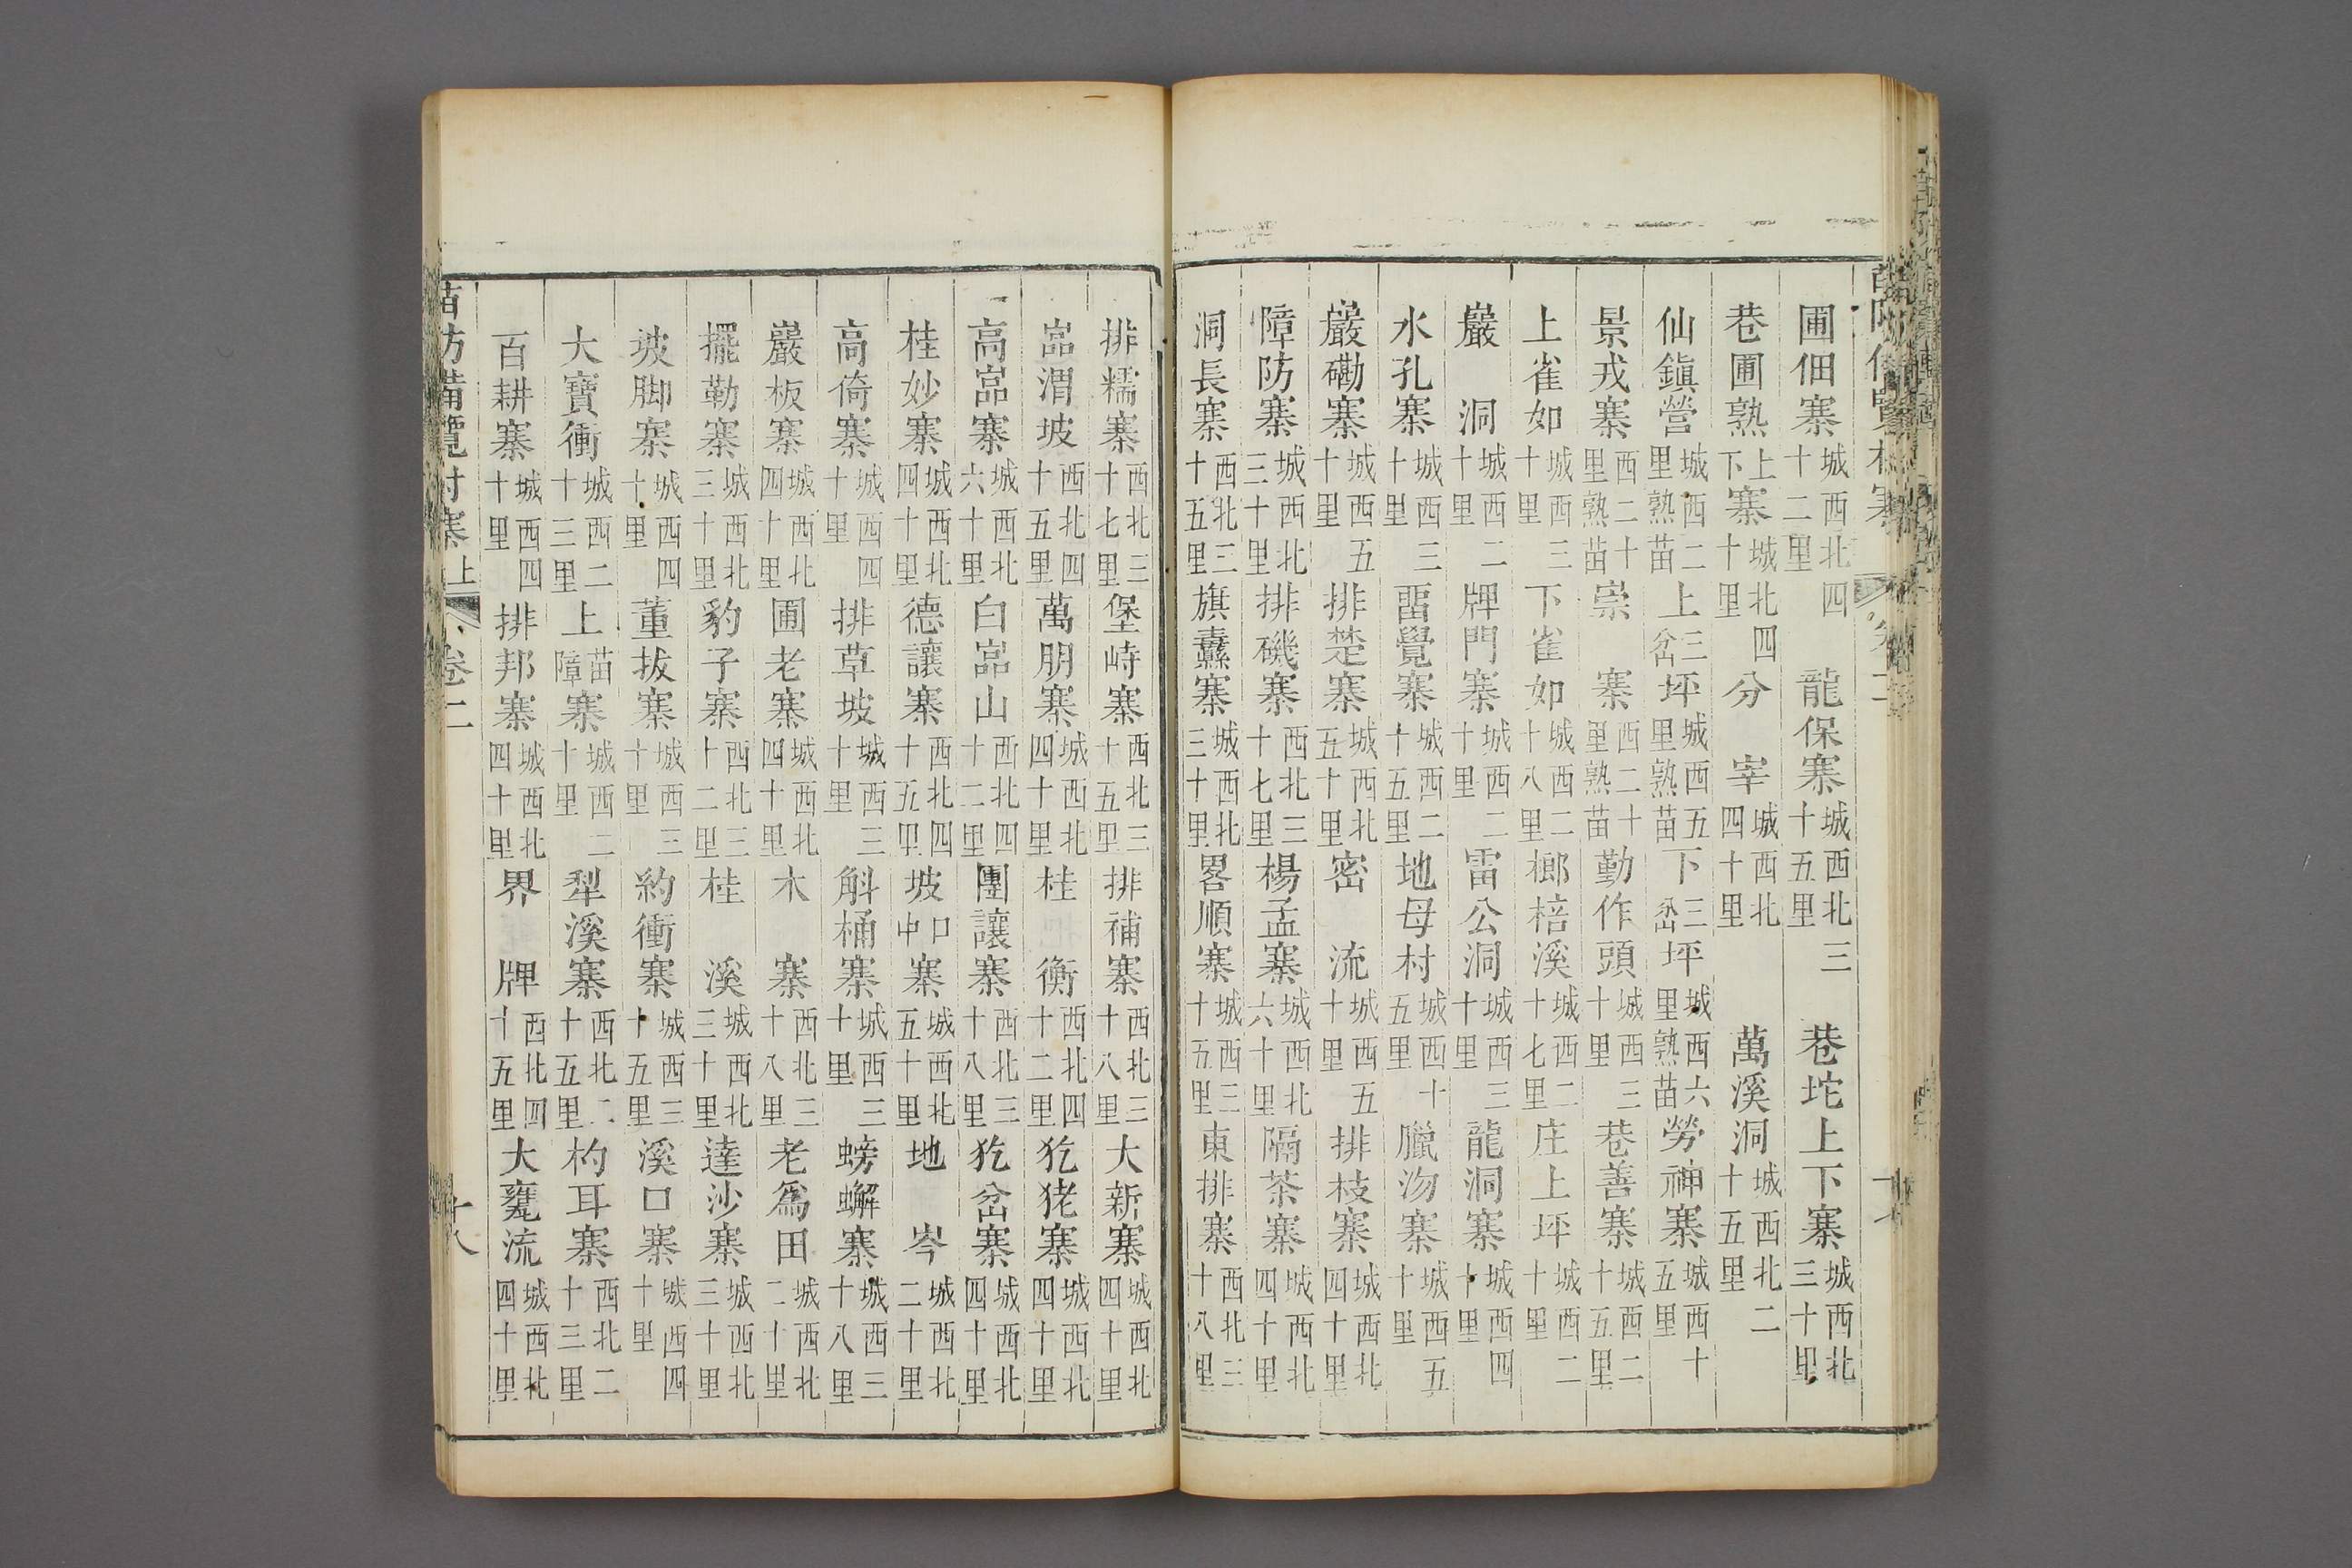 圃佃寨城西北四十二里 龍保寨城西北三十五里 巷坨上下寨城西北三十里
巷圃熟上下寨城北四十里 分宰城西北四十里 萬溪洞城西北二十五里
仙鎮營城西二里熟苗 上三岔坪城西五里熟苗 下三岔坪城西六里熟苗 勞神寨城西十五里
景戎寨西二十里熟苗 崇寨西二十里熟苗 勤作頭城西三十里 巷善寨城西二十五里
上雀如城西三十里 下雀如城西二十八里 榔棓溪城西二十七里 庄上坪城西二十里
巖洞城西二十里 牌門寨城西二十里 雷公洞城西三十里 龍洞寨城西四十里
水孔寨城西三十里 畱覺寨城西二十五里 地母村城西十五里 臘沕寨城西五十里
巖磡寨城西五十里 排楚寨城西北五十里 密流城西五十里 排枝寨城西北四十里
障防寨城西北三十里 排磯寨西北三十七里 楊孟寨城西北六十里 隔茶寨城西北四十里
洞長寨西北三十五里 旗纛寨城西北三十里 畧順寨城西三十五里 東排寨西北三十八里
排糯寨西北三十七里 堡峙寨西北三十五里 排補寨西北三十八里 大新寨城西北四十里
嵓渭坡西北四十五里 萬朋寨城西北四十里 桂衡西北四十二里 犵狫寨城西北四十里
高嵓寨城西北六十里 白嵓山西北四十二里 團讓寨西北三十八里 犵岔寨城西北四十里
桂妙寨城西北四十里 德讓寨西北四十五里 坡口中寨城西北五十里 地岑城西北二十里
高倚寨城西四十里 排草坡城西三十里 斛桶寨城西三十里 螃蠏寨城西三十八里
巖板寨城西北四十里 圃老寨城西北四十里 木寨西北三十八里 老爲田城西北二十里
擺勒寨城西北三十里 豹子寨西北三十二里 桂溪城西北三十里 達沙寨城西北三十里
坡脚寨城西四十里 董拔寨城西三十里 約衝寨城西三十五里 溪口寨城西四十里
大寶衝城西二十三里 上苗障寨城西二十里 犁溪寨西北二十五里 杓耳寨西北二十三里
百耕寨城西四十里 排邦寨城西北四十里 界牌西北四十五里 大甕流城西北四十里
苗防備覽 村寨上 卷二 十八